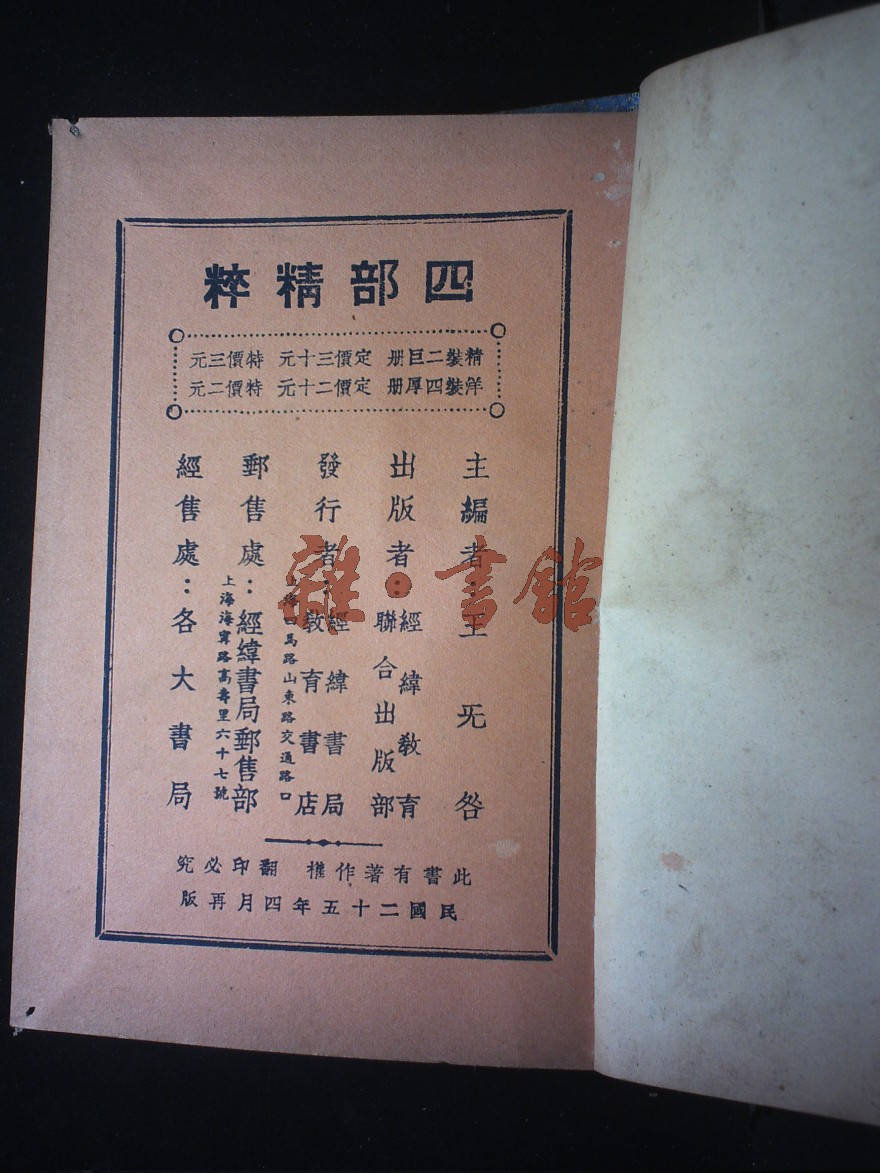 四部精粹
精裝二巨册 定價三十元 特價三元
洋裝四厚册 定價二十元 特價二元
主編者：王旡咎
出版者：經緯教育聯合出版部
發行者：經緯書局
教育書店
上海四馬路山東路交通路口
郵售處：經緯書局郵售部
上海海寧路高壽里六十七號
經售處：各大書局
此書有著作權 翻印必究
民國二十五年四月再版
雜·書館